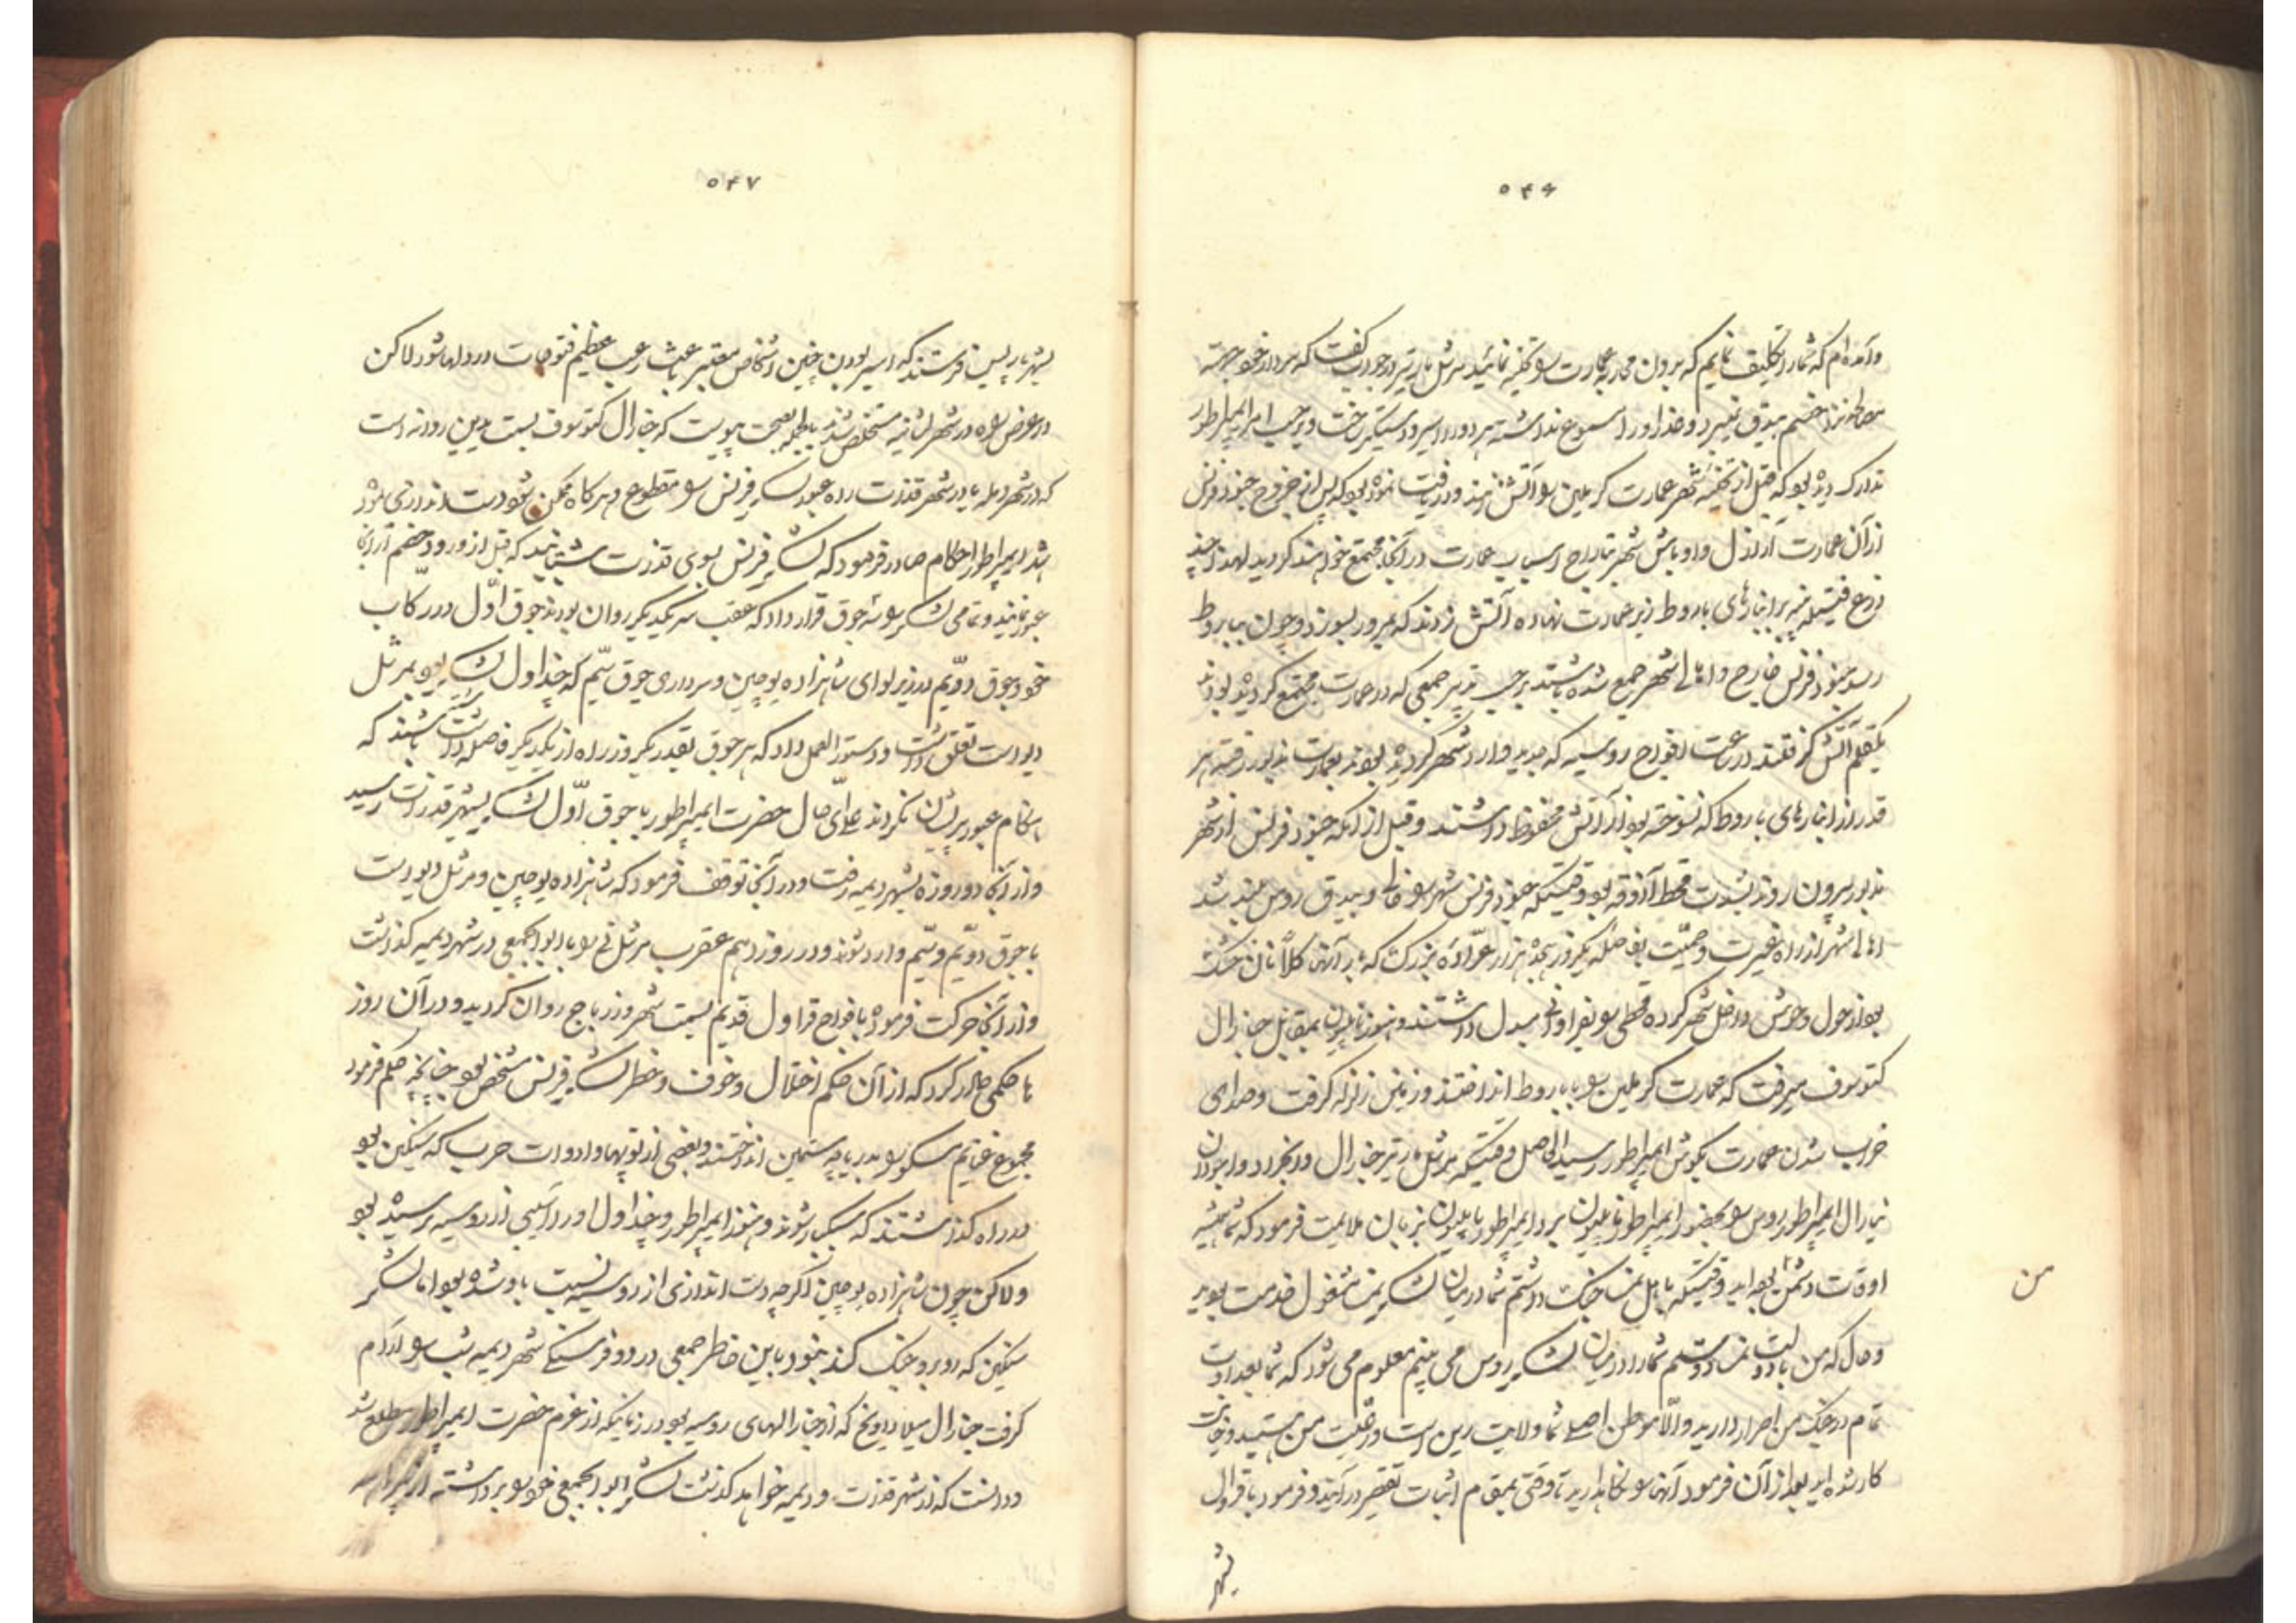 ۵۴۶
وآمده‌ام که شما را تکلیف نمایم که بدون محاربه عمارت را تخلیه نمائید مرشل مارتیر در جواب گفت که سردار خود جهة
ملاحظه نزد خصم بیدق نمیبرد و عذر او را مسموع نداشته هر دو را اسیر و دستگیر ساخت و بر حسب امر ایمپراطور
تدارک دیده بود که قبل از تخلیه شهر عمارت کریملین را آتش زنند و دریافت نموده بود که پس از خروج جنود فرنس
از آن عمارت اراذل و اوباش شهر بتاراج اسباب عمارت در آنجا مجتمع خواهند گردید لهذا چند
ذرع فتیله بر انبارهای باروط زیر عمارت نهاده آتش زدند که بمرور بسوزد و چون بباروط
رسد جنود فرنس خارج و اهالی شهر جمع شده باشند بر حسب تدبیر جمعی که در عمارت مجتمع گردیده بودند
بیکقلم آتش گرفتند در ساعت افواج روسیه که جدید وارد شهر گردیده بودند بعمارت مذبور رفته هر
قدر از انبارهای باروط که نسوخته بود از آتش محفوظ داشتند و قبل از آنکه جنود فرنس از شهر
مذبور بیرون روند بشدت قحط آذوقه بود وقتیکه جنود فرنس شهر را خالی و بیدق روس بلند شد
اهالی شهر از راه غیرت و حمیّت بفاصله یکروز هجده هزار عرّاده بزرگ که بار آنها کلّاً نان خشک
بود از حول و حوش داخل شهر کرده قحطی را بفراوانی مبدل داشتند و هنوز ناپلیون بمقابل جنرال
کتوسوف میرفت که عمارت کریملین را بباروط انداختند و زمین زلزله گرفت و صدای
خراب شدن عمارت بگوش ایمپراطور رسید الحاصل وقتیکه مرشل مارتیر جنرال ونجراد و اجودان
جنرال ایمپراطور روس را بحضور ایمپراطور ناپلیون برد ایمپراطور ناپلیون بزبان ملایمت فرمود که شما همیشه
اوقات دشمن من بوده‌اید وقتیکه با اهل نمسا جنگ داشتم شما در میان لشکر نمسا مشغول خدمت بودید
وحال که من با دولت نمسا دوستم شما را در میان لشکر روس می بینم معلوم می شود که شما بعداوت
تمام در جنگ من اصرار دارید والّا موطن اصلی شما ولایت رین است و رعیّت من هستید و خیانت
کار شده‌اید بعد از آن فرمود آنها را نگاهدارید تا وقتی بمقام اثبات تقصیر در آیند و فرمود با قراول
بشهر
من
۵۴۷
بشهر پاریس فرستند که اسیر بودن چنین اشخاص معتبر باعث رعب عظیم فتوحات در دلها شود لاکن
در عرض راه در شهر لتانیه مستخلص شدند بالجمله بصحت پیوست که جنرال کتوسوف بسمت مدین روانه است
که در شهر دیمه یا در شهر قذرت راه عبور لشکر فرنس را مقطوع و هر گاه ممکن شود دست اندازی نموده
باشد ایمپراطور احکام صادر فرمود که لشکر فرنس بسوی قذرت بشتابند که قبل از ورود خصم از آنجا
عبور نمایند و تمامی لشکر را سه جوق قرار داد که عقب سر یکدیگر روان بودند جوق اوّل در رکاب
خود و جوق دویّم در زیر لوای شاهزاده یوجین و سرداری جوق سیّم که چنداول لشکر بود بمرشل
دیوست تعلق داشت و دستور العمل داد که هر جوق بقدر یکروزه راه از یکدیگر فاصله داشته باشند که
هنگام عبور پریشان نگردند علی ایّ حال حضرت ایمپراطور با جوق اوّل لشکر بشهر قذرت رسید
و از آنجا دو روزه بشهر دیمه رفت و در آنجا توقف فرمود که شاهزاده یوجین و مرشل دیوست
با جوق دویّم و سیّم وارد شوند و در روز دهم عقرب مرشل نی را با ابوابجمعی در شهر دیمیه گذاشت
و از آنجا حرکت فرموده با افواج قراول قدیم بسمت شهر وزرباج روان گردید و در آن روز
تا حکمی صادر کرد که از آن حکم اختلال و خوف و خطر لشکر فرنس مشخص بود چنانچه حکم فرمود
مجموع غنایم مسکو را بدریاچه ستمین انداختند و بعضی از توپها و ادوات حرب که سنگین بود
در راه گذاشتند که سبکبار شوند و هنوز ایمپراطور و چنداول او را آسیبی از روسیه نرسیده بود
ولاکن چون شاهزاده یوجین اگرچه دست اندازی از روسیه نسبت باو شده بود اما لشکر
سنگین که روبرو جنگ کند نبود باین خاطر جمعی در دو فرسنگی شهر دیمیه شب را آرام
گرفت جنرال میلارادونج که از جنرالهای روسیه بود در زمانیکه از عزم حضرت ایمپراطور مطلع شد
و دانست که از شهر قذرت و دیمیه خواهد گذشت لشکر ابوابجمعی خود را برداشته از بیراهه